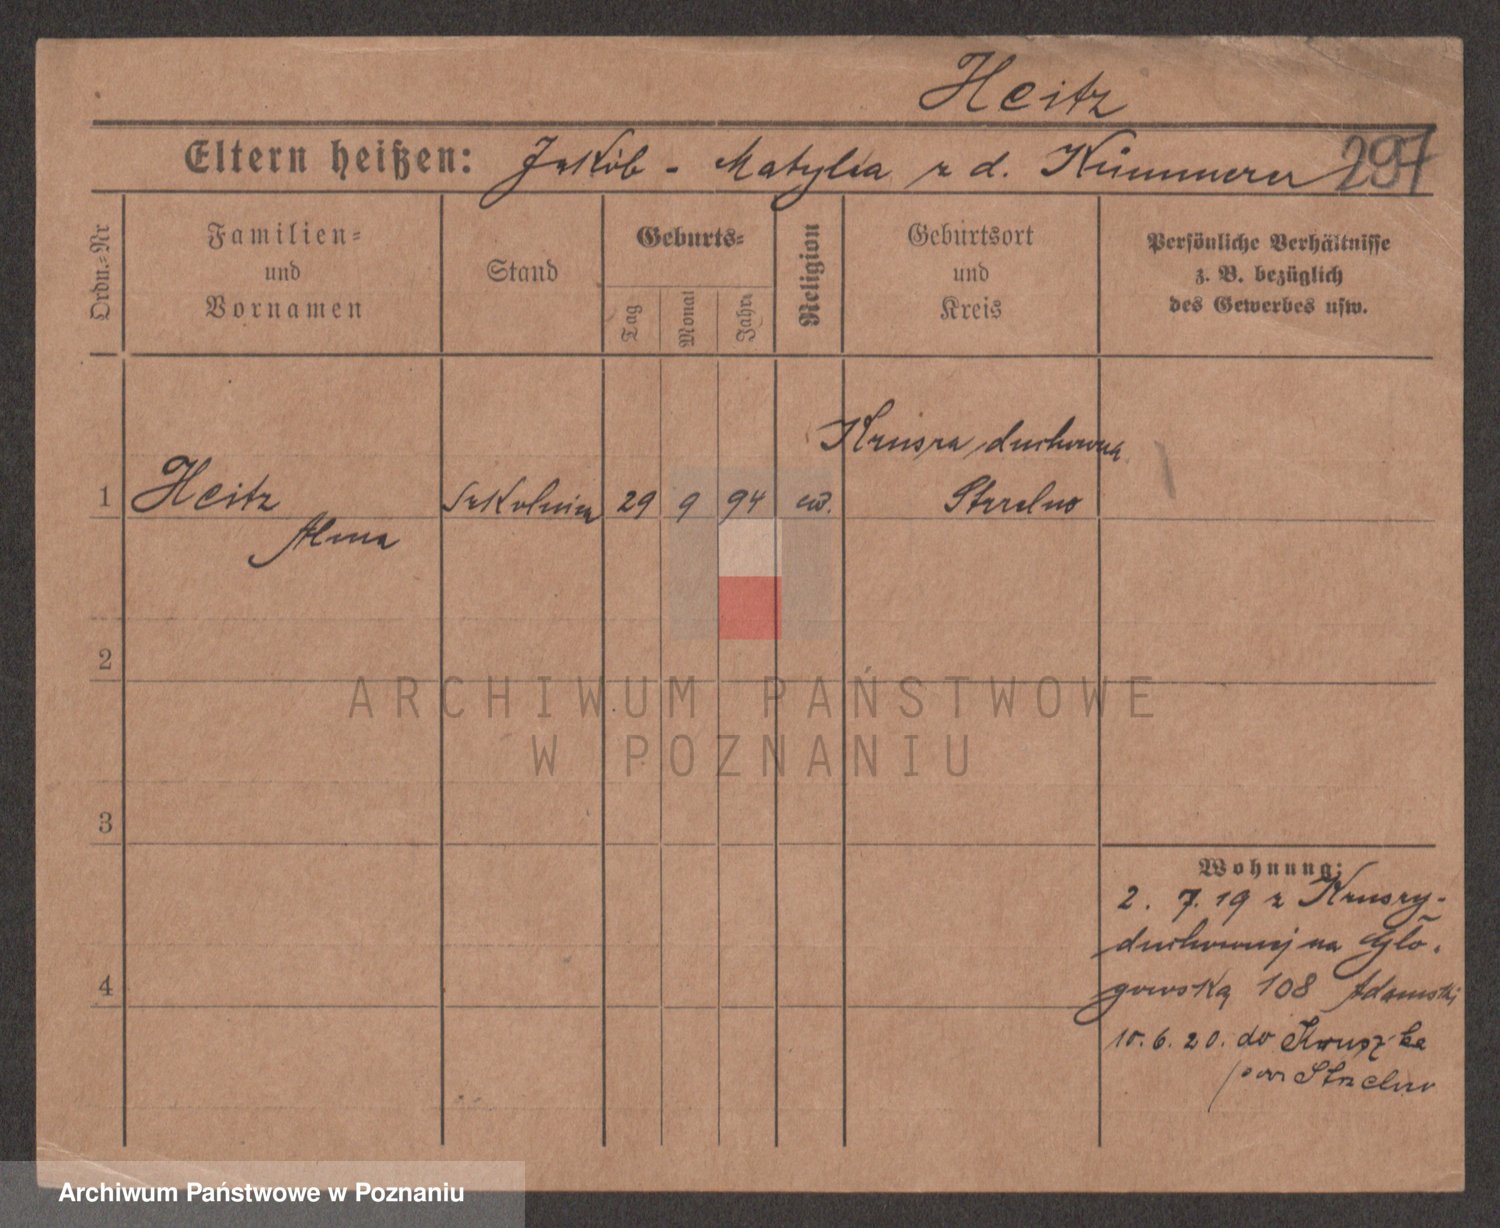 Heitz
Eltern heißen: Jakób - Matylda z d. Kümmerer 297
Ordn.=Nr
Familien=
und
Vornamen
Stand
Geburts=
Tag
Monat
Jahr
Religion
Geburtsort
und
Kreis
Persönliche Verhältnisse
z. B. bezüglich
des Gewerbes usw.
Krusza duchowna
1 Heitz 29 9 94 ew. Strzelno
Alma
2
ARCHIWUM PAŃSTWOWE
W POZNANIU
3
Wohnung:
2. 7. 19 z Kruszy-
duchownej na Gło-
4
gowską 108 Adamski
10. 6. 20. do
pow Strzelno
Archiwum Państwowe w Poznaniu